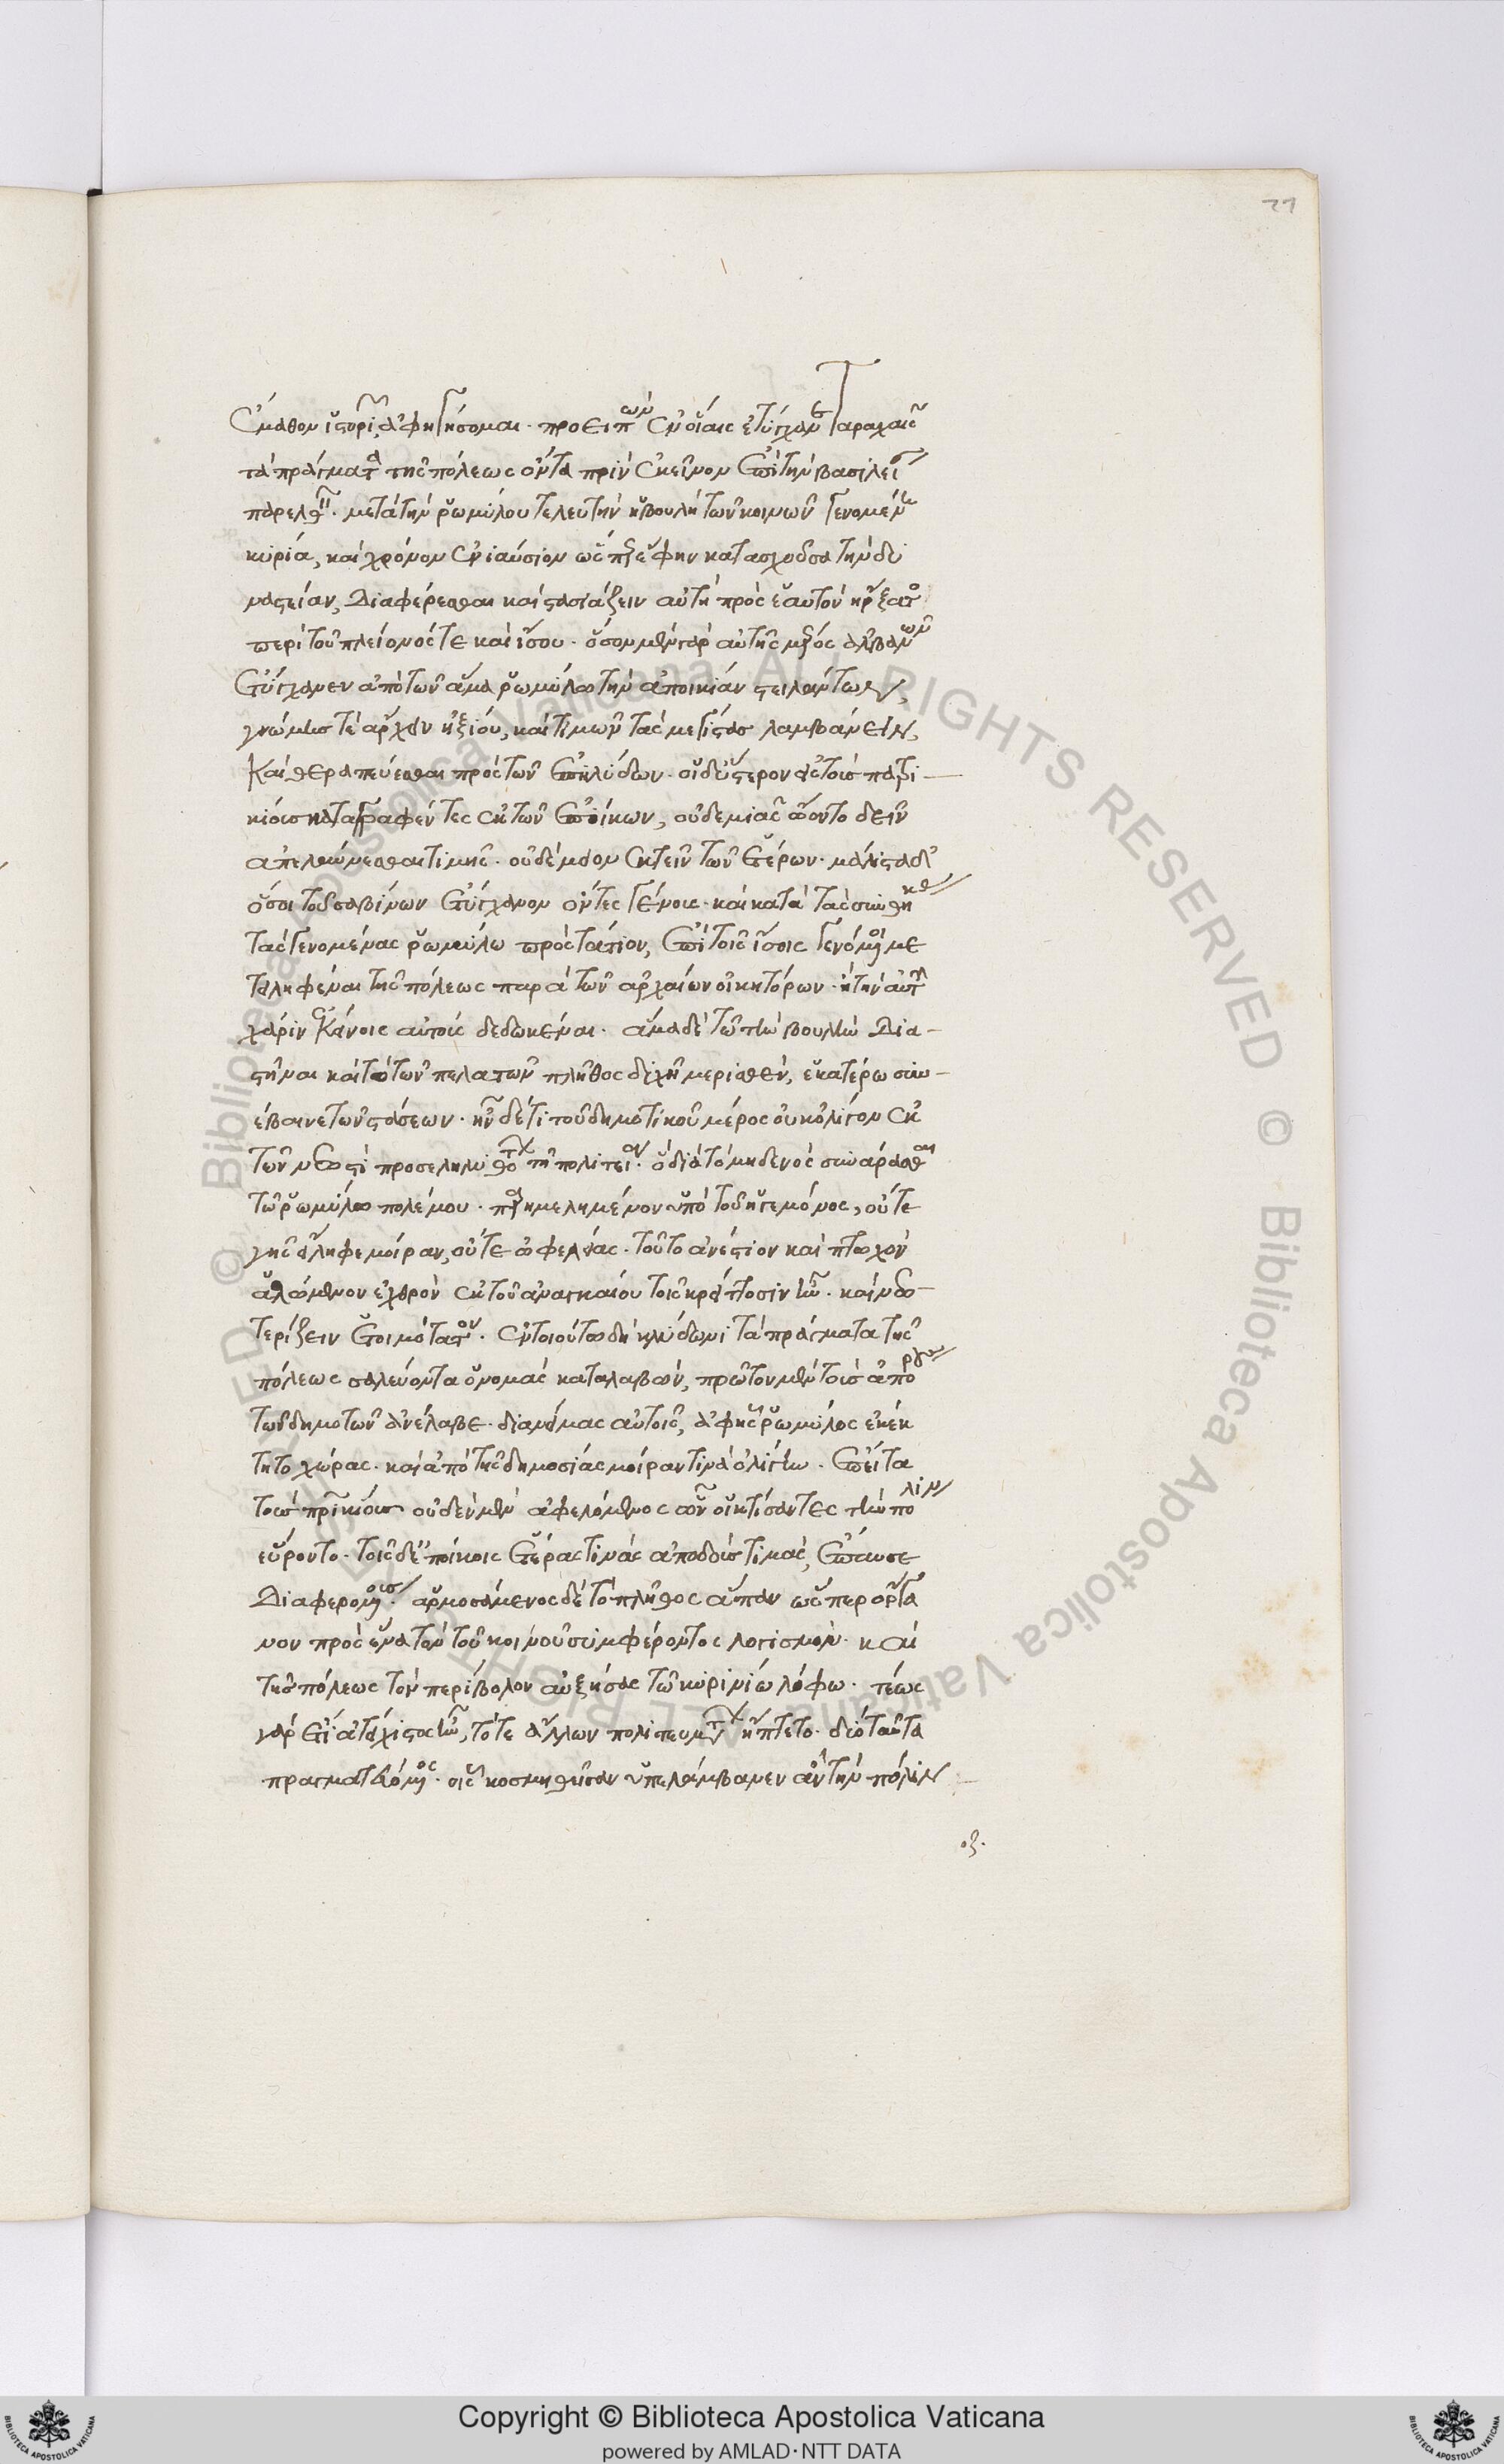 77
ἔμαθον ἱστορίας ἀφηγήσομαι· προειπὼν ἐν οἵαις ἐτύγχανε ταραχαῖς
τὰ πράγματα τῆς πόλεως ὄντα πρὶν ἐκεῖνον ἐπὶ τὴν βασιλείαν
παρελθεῖν· μετὰ τὴν ῥωμύλου τελευτὴν ἡ βουλὴ τῶν κοινῶν γενομένη
κυρία, καὶ χρόνον ἐνιαύσιον ὥσπερ ἔφην κατασχοῦσα τὴν δυ
ναστείαν, διαφέρεσθαι καὶ στασιάζειν αὐτὴ πρὸς ἑαυτὸν ἤρξατο
περὶ τοῦ πλείονός τε καὶ ἴσου· ὅσον μὲν γὰρ αὐτῆς μέρος ἀλβανῶν
ἐτύγχανεν ἀπὸ τῶν ἅμα ῥωμύλω τὴν ἀποικίαν στειλάντων,
γνώμης τε ἄρχειν ἠξίου, καὶ τιμῶν τὰς μεγίστας λαμβάνειν,
καὶ θεραπεύεσθαι πρὸς τῶν ἐπηλύδων· οἱ δ' ὕστερον εἰς τοὺς πατρι
κίους καταγραφέντες ἐκ τῶν ἐποίκων, οὐδεμιᾶς ᾤοντο δεῖν
ἀπελαύνεσθαι τιμῆς· οὐδὲ μῖον ἐκτεῖν τῶν ἑτέρων· μάλιστα δ'
ὅσοι τοῦ σαβίνων ἐτύγχανον ὄντες γένους· καὶ κατὰ τὰς συνθήκας
τὰς γενομένας ῥωμύλω πρὸς τάτιον, ἐπὶ τοῖς ἴσοις γενόμενοι με
ταληφέναι τῆς πόλεως παρὰ τῶν ἀρχαίων οἰκητόρων· ἢ τὴν αὐτὴν
χάριν κἀκείνοις αὐτοὶ δεδωκέναι· ἅμα δὲ τῶ τὴν βουλὴν δια
στῆναι καὶ τὸ τῶν πελατῶν πλῆθος διχῆ μερισθὲν, ἑκατέρω συν
έβαινε τῶν στάσεων· ἦν δέ τι τοῦ δημοτικοῦ μέρος οὐκ ὀλίγον ἐκ
τῶν νεωστὶ προσεληλυθότων τῆ πολιτεία· ὃ διὰ τὸ μηδενὸς συνάρασθαι
τῶ ῥωμύλω πολέμου· παρημελημένον ὑπὸ τοῦ ἡγεμόνος, οὔτε
γῆς εἰλήφε μοίραν, οὔτε ὠφελείας· τοῦτο ἀνέστιον καὶ πτωχὸν
ἀλώμενον ἐχθρὸν ἐκ τοῦ ἀναγκαίου τοῖς κρείττοσιν ἦν· καὶ νεω
τερίζειν ἑτοιμότατον· ἐν τοιούτω δὴ κλύδωνι τὰ πράγματα τῆς
πόλεως σαλεύοντα ὁ νομᾶς καταλαβὼν, πρῶτον μὲν τοὺς ἀπόρους
τῶν δημοτῶν ἀνέλαβε· διανείμας αὐτοῖς, ἀφ' ἧς ῥωμύλος ἐκέκ
τητο χώρας· καὶ ἀπὸ τῆς δημοσίας μοίραν τινὰ ὀλίγην· ἔπειτα
τοὺς πατρικίους οὐδὲν μὲν ἀφελόμενος ὧν οἱ κτίσαντες τὴν πόλιν
εὕροντο· τοῖς δ' ἐποίκοις ἑτέρας τινὰς ἀποδοὺς τιμὰς, ἔπαυσε
διαφερομένους· ἁρμοσάμενος δὲ τὸ πλῆθος ἅπαν ὥσπερ ὄργα
νον πρὸς ἕνα τὸν τοῦ κοινοῦ συμφέροντος λογισμὸν· καὶ
τῆς πόλεως τὸν περίβολον αὐξήσας τῶ κυρινίω λόφω· τέως
γὰρ ἔτι ἀτείχιστος ἦν, τότε ἄλλων πολιτευμάτων ἥπτετο· δύο ταῦτα
πραγματευόμενος· οἷς κοσμηθεῖσαν ὑπελάμβανεν ἂν τὴν πόλιν